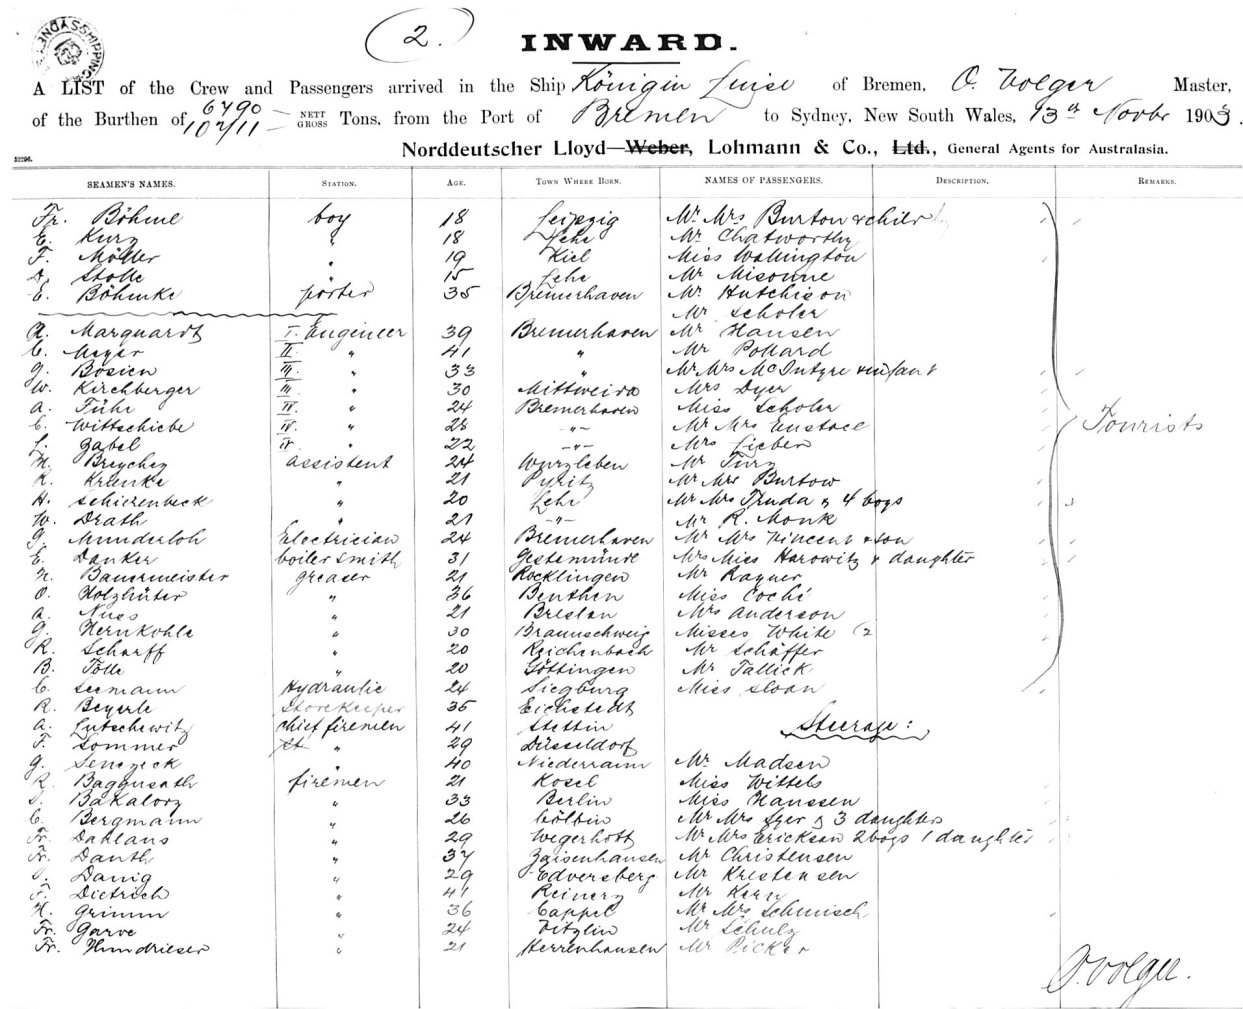 SYDNEY SHIPPING
2.
INWARD.
A LIST of the Crew and Passengers arrived in the Ship Königin Luise of Bremen, O. Volger Master,
of the Burthen of 6790 10711 NETT GROSS Tons, from the Port of Bremen to Sydney, New South Wales, 13th Novbr 1903.
Norddeutscher Lloyd—Weber, Lohmann & Co., Ltd., General Agents for Australasia.
52296.
SEAMEN'S NAMES. STATION. AGE. TOWN WHERE BORN. NAMES OF PASSENGERS. DESCRIPTION. REMARKS.
Fr. Böhme boy 18 Leipzig Mr Mrs Burton & child
E. Kurz " 18 Lehe Mr Chatworthy
F. Möller " 19 Kiel Miss Wallington
A. Stolle " 15 Lehe Mr Misonne
E. Böhmke porter 35 Bremerhaven Mr Hutchison
Mr Scholer
A. Marquardt I. Engineer 39 Bremerhaven Mr Hansen
C. Meyer II. " 41 " Mr Pollard
G. Bösien III. " 33 " Mr Mrs McIntyre & infant
W. Kirchberger III. " 30 Mittweida Mrs Dyer
A. Führ IV. " 24 Bremerhaven Miss Scholer
C. Wittschiebe IV. " 28 -"- Mr Mrs Eustace Tourists
L. Zabel IV. " 22 -"- Mrs Lieber
H. Breychez assistent 24 Wurzleben Mr Turz
K. Krienke " 21 Pyritz Mr Mrs Burtow
H. Schierenbeck " 20 Lehe Mr Mrs Truda & 4 boys
W. Drath " 21 -"- Mr R. Monk
G. Munderloh Electrician 24 Bremerhaven Mr Mrs Vincent & son
E. Danker boilersmith 31 Gestemünde Mrs Miss Harowitz & daughter
H. Bauermeister greaser 21 Rocklingen Mr Rayner
O. Holzhüter " 36 Benthen Miss Cochi
A. Nuss " 21 Breslau Mrs Anderson
G. Hernkohle " 30 Braunschweig Misses White (2
R. Scharff " 20 Reichenbach Mr Schäffer
B. Tölle " 20 Göttingen Mr Tallick
C. Seemann Hydraulic 24 Siegburg Miss Sloan
R. Beyerle Storekeeper 35 Eichstedt
A. Lutschewitz chief firemen 41 Stettin Steerage:
F. Sommer " 29 Düsseldorf
G. Senezeck " 40 Niederramm Mr Madsen
R. Baggusath firemen 21 Kosel Miss Wittels
Bakalorz " 33 Berlin Miss Hanssen
C. Bergmann " 26 Cölbin Mr Mrs Iyer & 3 daughters
Fr. Dahlans " 29 Wegerhott Mr Mrs Erickson 2 boys 1 daughter
Fr. Danth " 37 Zaisenhausen Mr Christensen
Danig " 29 Edversberg Mr Kristensen
F. Dietrich " 41 Reinerz Mr Kern
H. Grimm " 36 Cappel Mr Mrs Schmisch
Fr. Garve " 24 Vitzlin Mr Schulz
Fr. Hindrieser " 21 Herrenhausen Mr Picker
O. Volger.